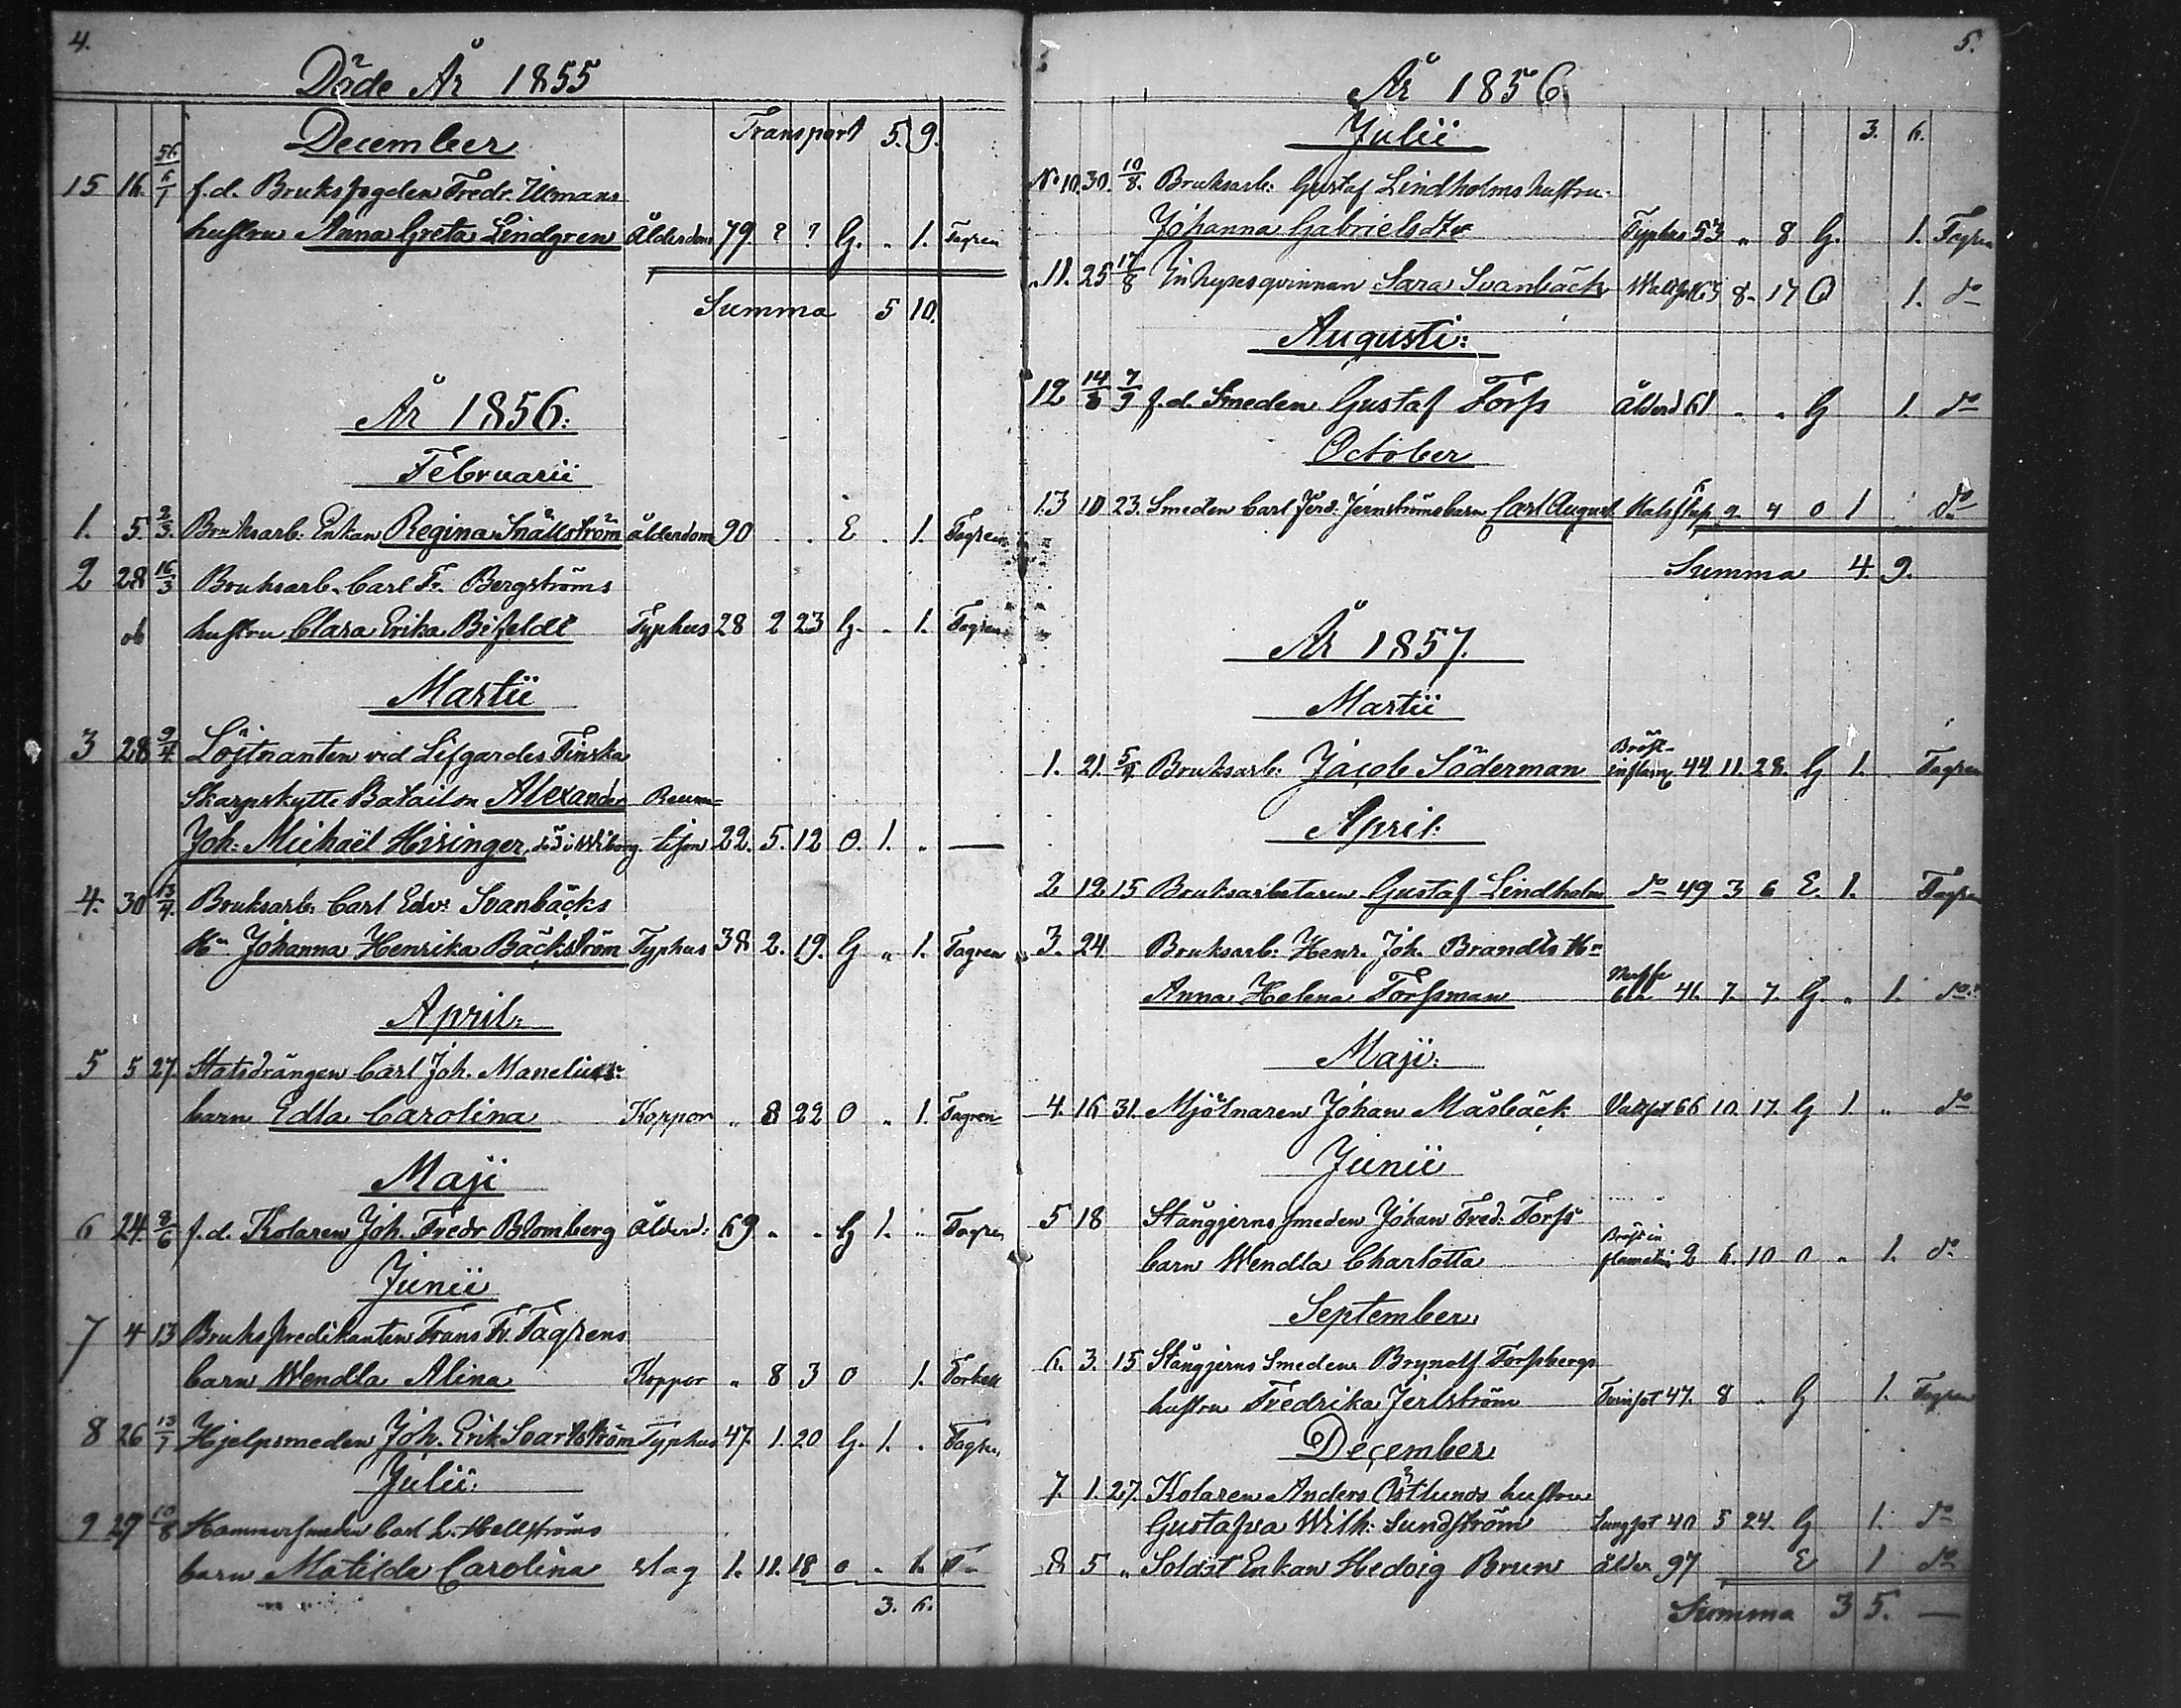 4.
Döde År 1855
December Transport 5. 9.
15 16. 56 6/1 f.d. Bruksfogden Fredr. Ulmans
hustru Anna Greta Lindgren Ålderdom 79 ? ? G. „ 1. Fagren
Summa 5 10.
År 1856:
Februarii
1. 5. 2/3. Bruksarb. Enkan Regina Snällström ålderdom 90 . . E . 1. Fagren
2 28 16/3 Bruksarb. Carl Fr. Bergströms
hustru Clara Erika Bifeldt Typhus 28 2 23 G. „ 1. Fagren
Martii
3 28 9/4 Löjtnanten vid Lifgardes Finska
Skarpskytte Batailon Alexander Reuma-
Joh: Michaël Hisinger, död i Wiborg. tism 22. 5. 12 O. 1. „ —
4. 30 13/4. Bruksarb. Carl Edv: Svanbäcks
Hu Johanna Henrika Bäckström Typhus 38 2. 19. G „ 1. Fagren
April:
5 5 27. Statsdrängen Carl Joh. Manelius:
barn Edla Carolina Koppor „ 8 22 O „ 1. Fagren
Maji
6 24. 8/6 f.d. Kolaren Joh. Fredr Blomberg Ålderd: 69 „ „ G 1. „ Fagren
Junii
7 4 13 Brukspredikanten Frans Fr. Fagrens
barn Wendla Alina Koppor „ 8 3 O 1. Forsell
8 26 13/7 Hjelpsmeden Joh. Erik Svartström Typhus 47. 1. 20 G. 1. . Fagren
Julii:
9 27 10/8 Hammarsmeden Carl L. Hellströms
barn Matilda Carolina slag 1. 11. 18 o „ 1. F—
3. 6.
5.
År 1856
Julii 3. 6.
No 10. 30. 10/8. Bruksarb: Gustaf Lindholms hustru
Johanna Gabrielsdtr Typhus 53 „ 8 G. 1. Fagren
„ 11. 25 17/8 Inhysesqvinnan Sara Svanbäck Wattsot 63 8. 17 O 1. do
Augusti:
12 14/8 7/9 f.d. Smeden Gustaf Forss Ålderd 61 „ „ G 1. do
October
13 10 23. Smeden Carl Ferd. Jernströms barn Carl August Halsflusp 2 4 O 1 . do
Summa 4. 9.
År 1857.
Martii
1. 21. 5/4 Bruksarb: Jacob Söderman Bröst-
inflam 44 11. 28. G 1. . Fagren
April:
2 12 15 Bruksarbetaren Gustaf Lindholm do 49 3 6 E. 1. Fagren
3. 24 Bruksarb: Henr. Joh. Brandts Hu
Anna Helena Forssman 41. 7. 7. G. „ 1. do
Maji:
4. 16 31. Mjölnaren Johan Måsbäck Vattsot 66 10. 17. G 1. „ do
Junii
5 18 Stångjernssmeden Johan Fred. Forss
barn Wendla Charlotta Bröstin
flamation 2 6. 10 O „ 1. do
September
6. 3. 15 Stångjerns Smeden Brynolf Forssbergs
hustru Fredrika Jerlström Tvinsot 47. 8 „ G 1. Fagren
December
7. 1. 27. Kolaren Anders Östlunds hustru
Gustafva Wilh: Sundström Lungsot 40 5 24. G 1. do
8 5 „ Soldat Enkan Hedvig Brun ålder 97 E 1 do
Summa 3 5. —